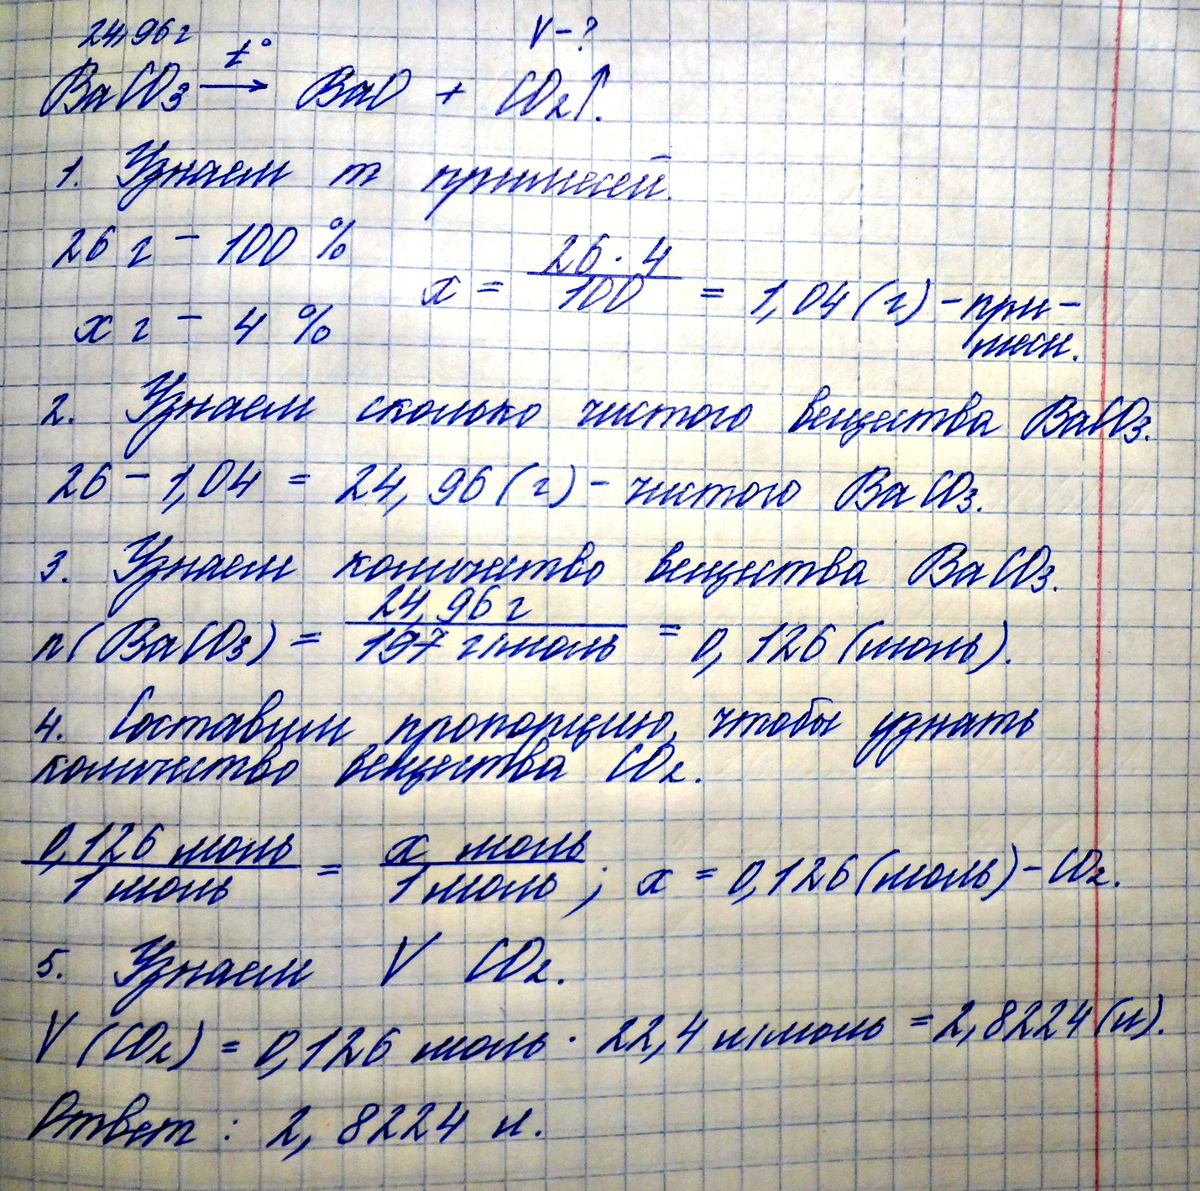 24,96 г V - ?
BaCO₃ →t° BaO + CO₂↑.
1. Узнаем m примесей.
26 г - 100 %
x г - 4 % x = 26 · 4 / 100 = 1,04 (г) - при-
меси.
2. Узнаем сколько чистого вещества BaCO₃.
26 - 1,04 = 24,96 (г) - чистого BaCO₃.
3. Узнаем количество вещества BaCO₃.
n(BaCO₃) = 24,96 г / 197 г/моль = 0,126 (моль).
4. Составим пропорцию, чтобы узнать
количество вещества CO₂.
0,126 моль / 1 моль = x моль / 1 моль ; x = 0,126 (моль) - CO₂.
5. Узнаем V CO₂.
V (CO₂) = 0,126 моль · 22,4 л/моль = 2,8224 (л).
Ответ : 2,8224 л.